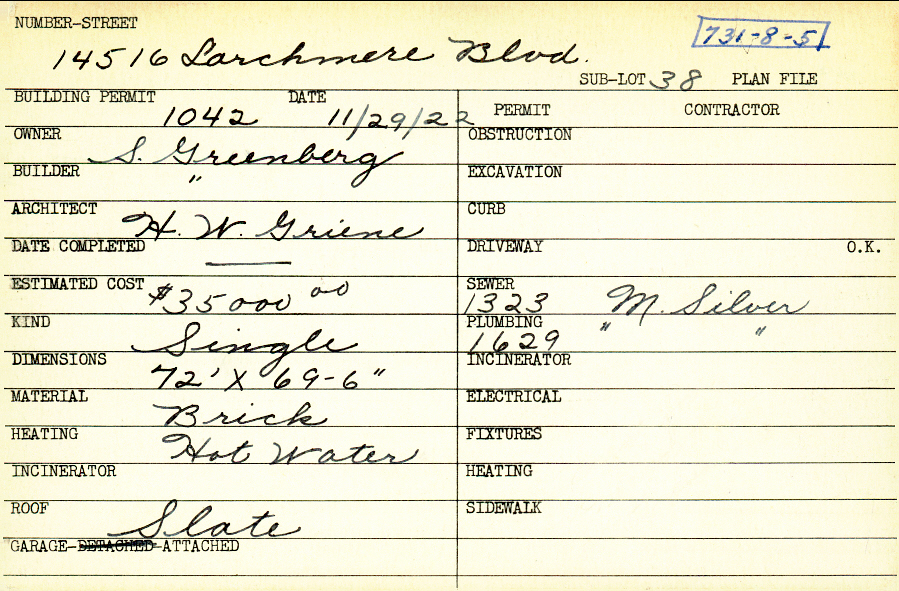 NUMBER-STREET
731-8-5
14516 Larchmere Blvd.
SUB-LOT 38 PLAN FILE
BUILDING PERMIT 1042 DATE 11/29/22
PERMIT CONTRACTOR
OWNER S. Greenberg
OBSTRUCTION
BUILDER "
EXCAVATION
ARCHITECT H. W. Griene
CURB
DATE COMPLETED —
DRIVEWAY O.K.
ESTIMATED COST $35000 00
SEWER 1323 M. Silver
KIND Single
PLUMBING 1629 " "
DIMENSIONS 72' X 69-6"
INCINERATOR
MATERIAL Brick
ELECTRICAL
HEATING Hot Water
FIXTURES
INCINERATOR
HEATING
ROOF Slate
SIDEWALK
GARAGE-DETACHED-ATTACHED